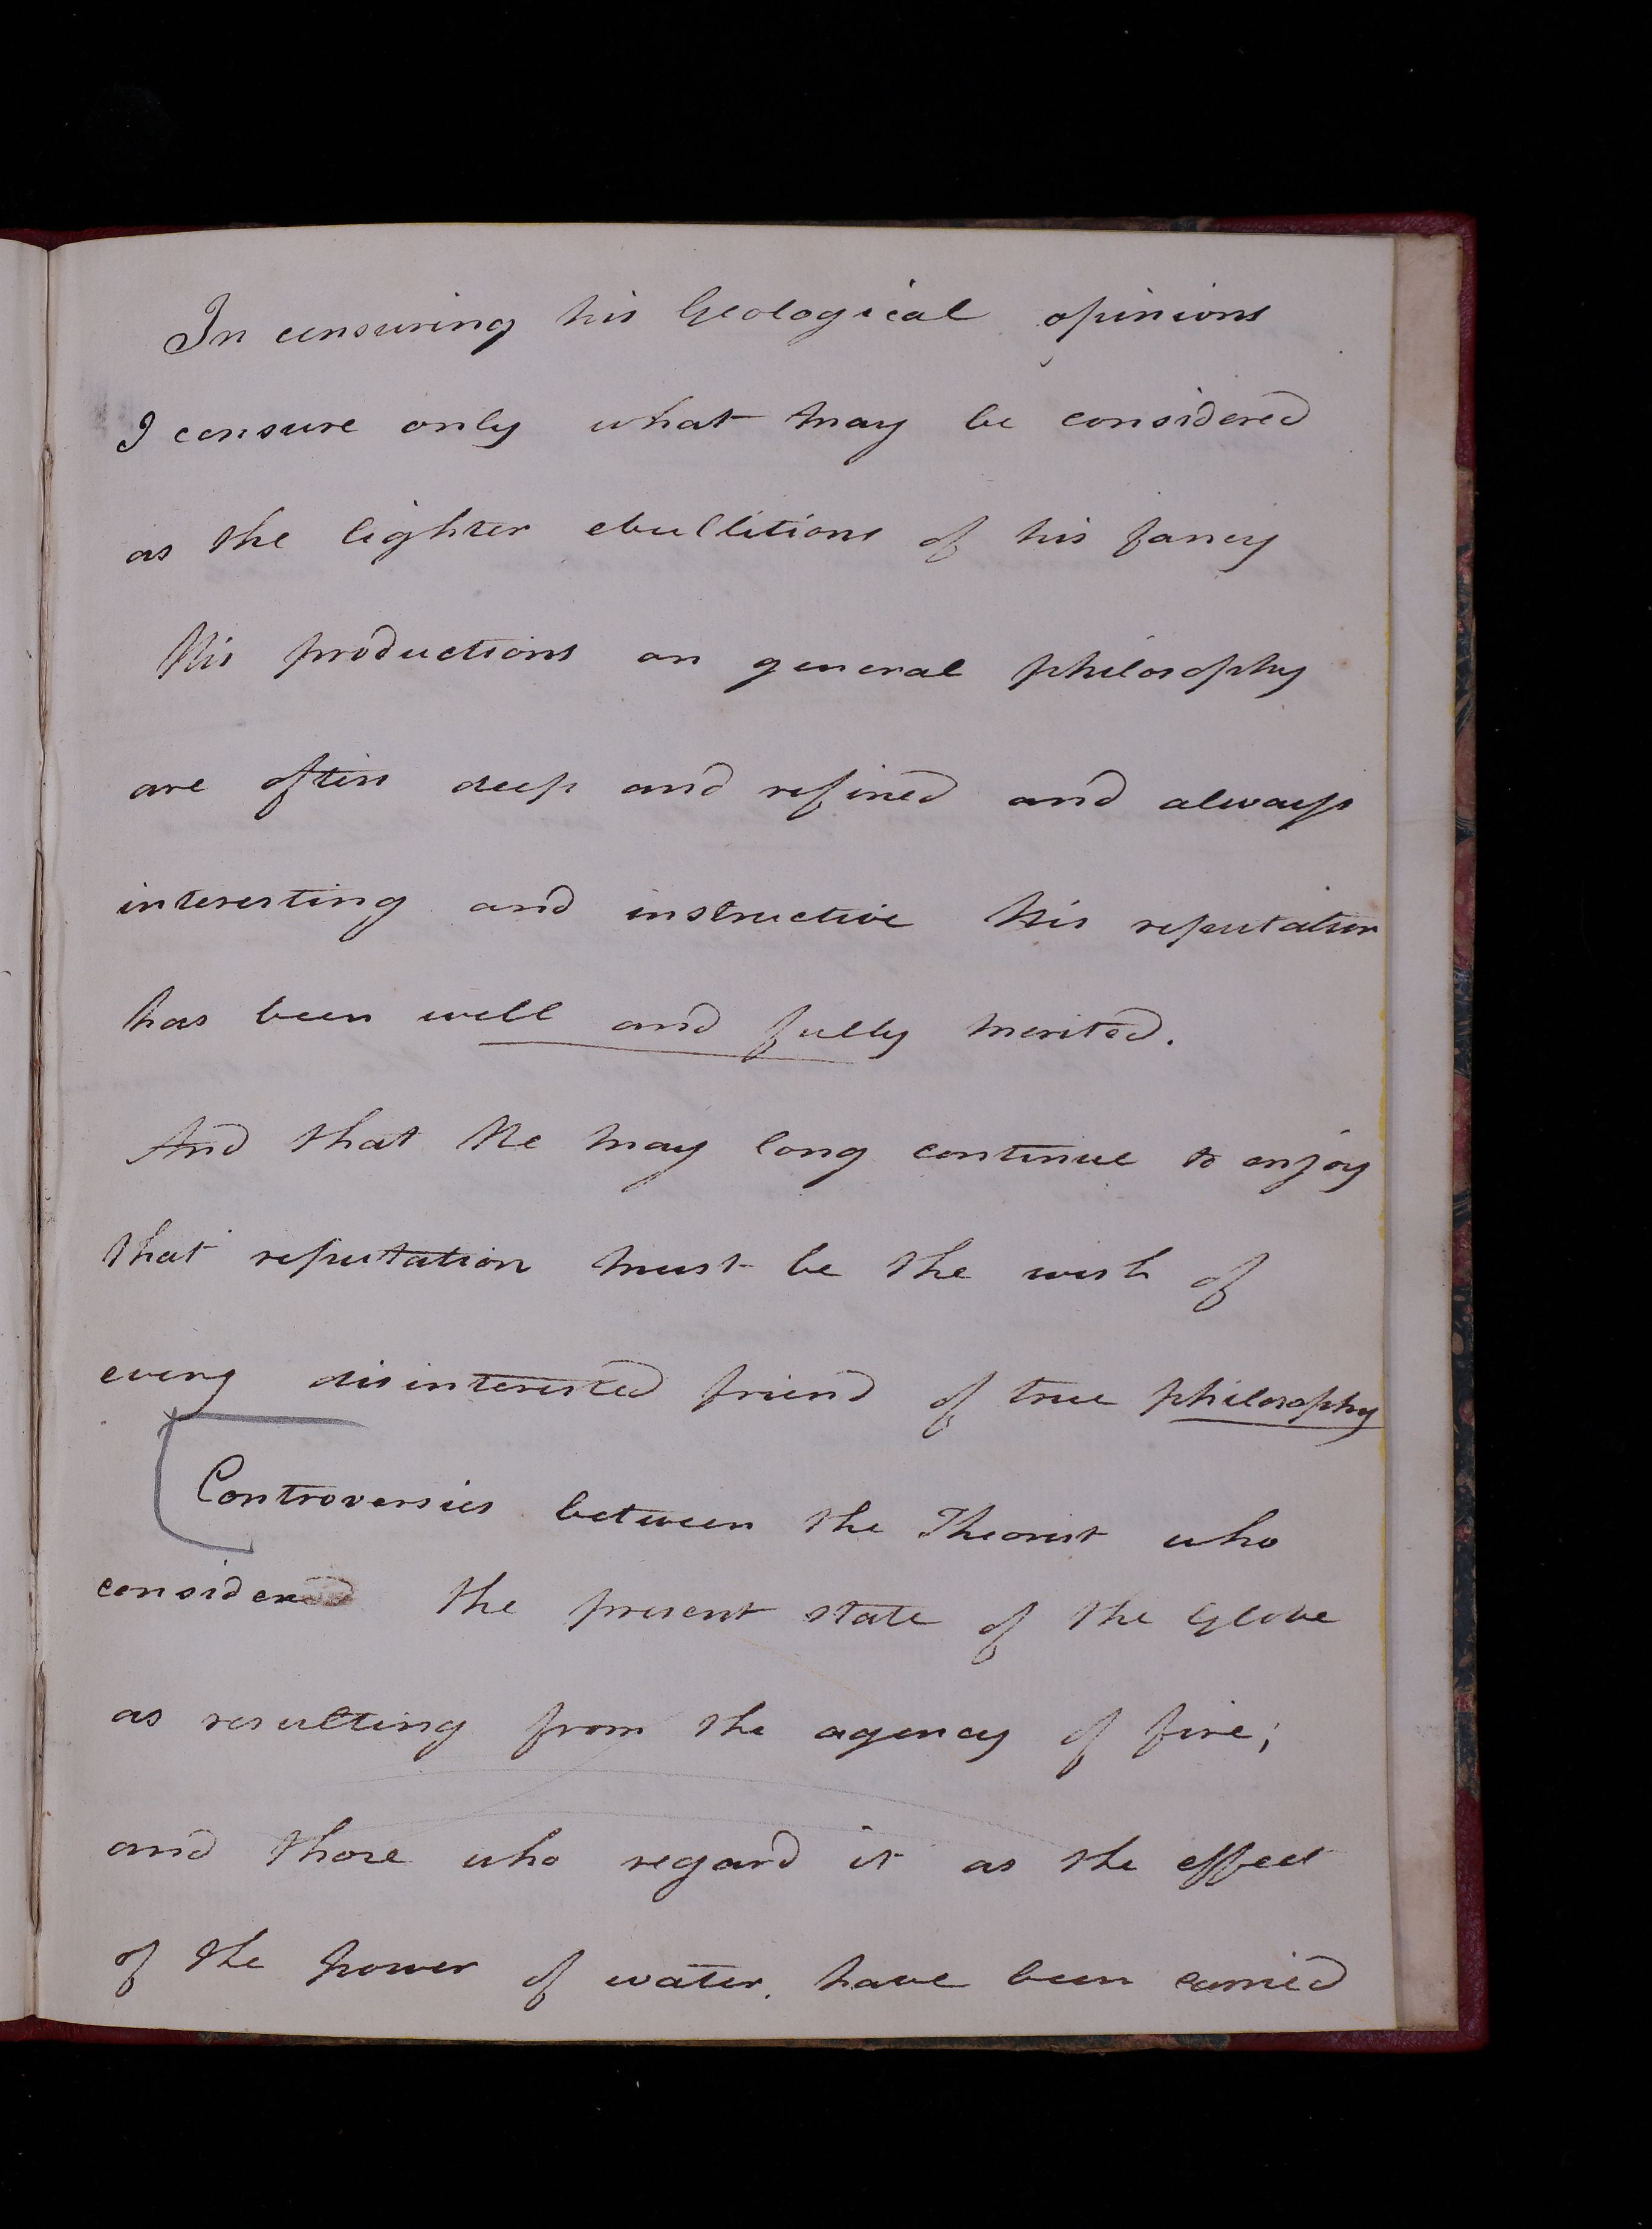 In censuring his Geological opinions
I censure only what may be considered
as the lighter ebullitions of his fancy
His productions on general philosophy
are often deep and refined and always
interesting and instructive His reputation
has been well and fully merited.
And that He may long continue to enjoy
that reputation must be the wish of
every disinterested friend of true philosophy
Controversies between the Theorist who
considered the present state of the Globe
as resulting from the agency of fire;
and those who regard it as the effect
of the power of water, have been carried